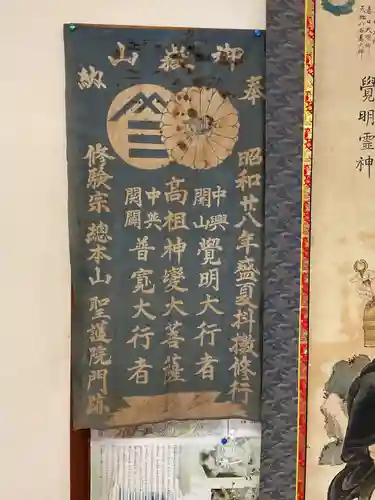 奉
御嶽山
納
昭和廿八年盛夏抖擻修行
中興
開山
覺明大行者
高祖神變大菩薩
中興
開闢
普寛大行者
修驗宗總本山聖護院門跡
覺明霊神